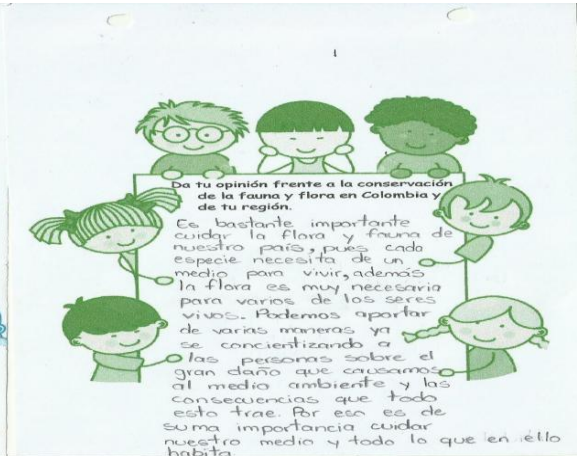 Da tu opinión frente a la conservación
de la fauna y flora en Colombia y
de tu región.
Es bastante importante
cuidar la flora y fauna de
nuestro país, pues cada
especie necesita de un
medio para vivir, además
la flora es muy necesaria
para varios de los seres
vivos. Podemos aportar
de varias maneras ya
se concientizando a
las personas sobre el
gran daño que causamos
al medio ambiente y las
consecuencias que todo
esto trae. Por eso es de
suma importancia cuidar
nuestro medio y todo lo que en él
habita.